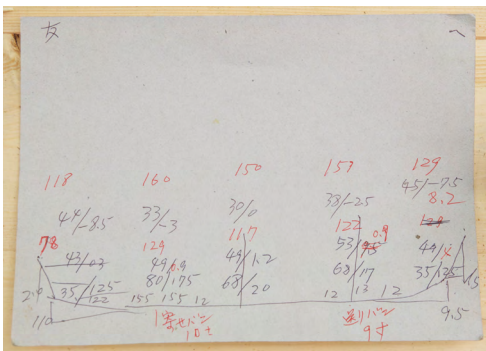 友 へ
118 160 150 157 129
45/-7.5
44/-8.5 33/-3 30/0 38/-25 8.2
78 129 11.7 122 129
43/03 49/0.9 49/1.2 53/95 0.9 49/
35/125 80/175 68/20 68/17 35/125
122 155 155 12 12 13 12 15
110 1寄せバン 送りバン 9.5
10寸 9寸